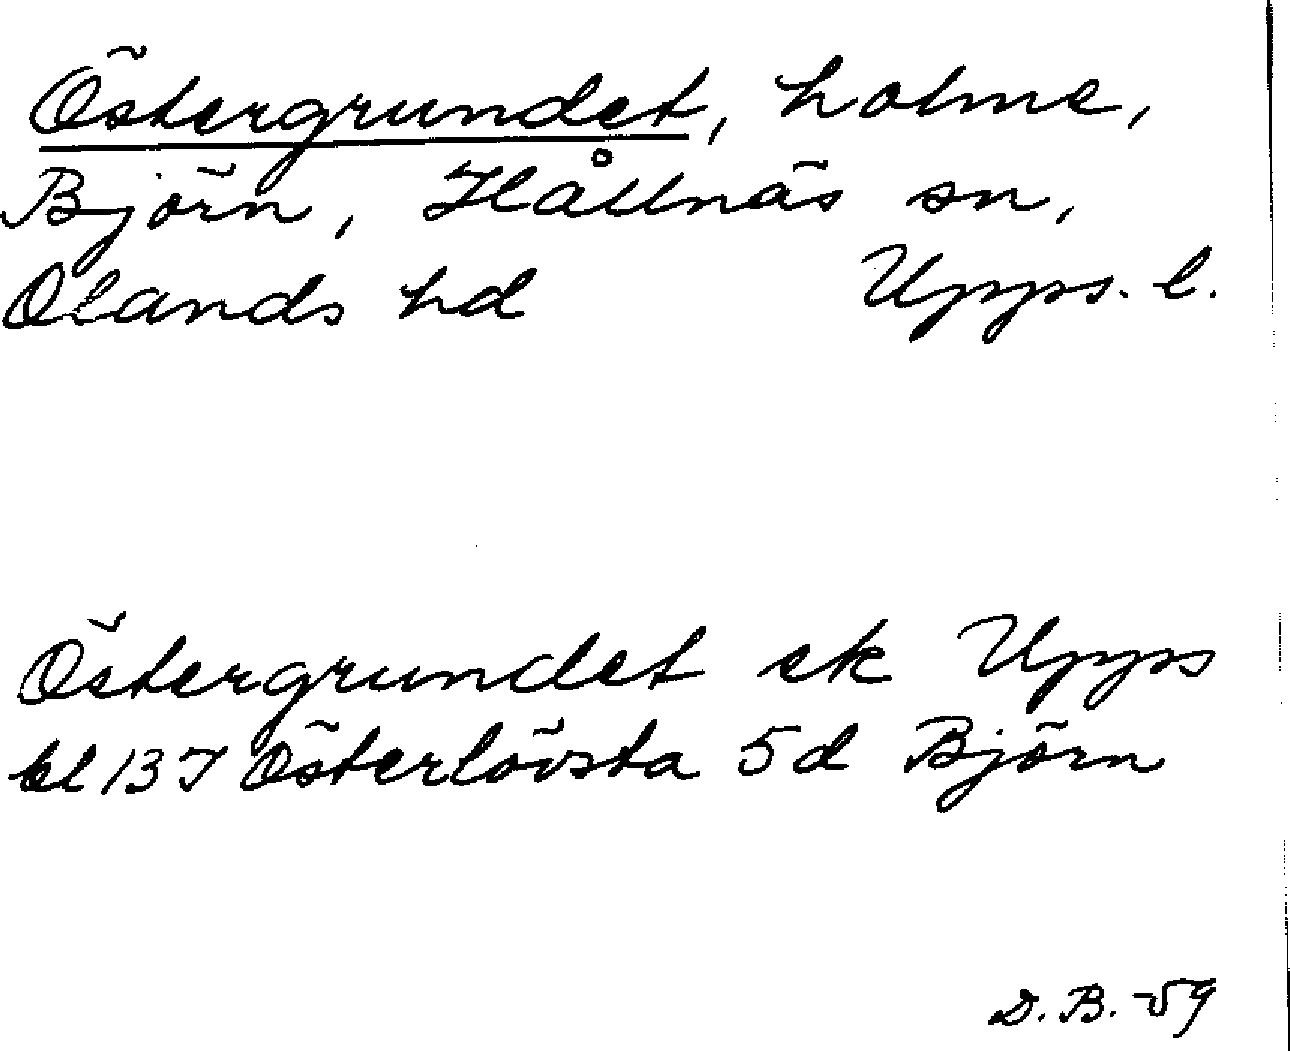 Östergrundet, holme,
Björn, Hållnäs sn,
Olands hd Upps. l.
Östergrundet ek Upps
bl 13 I Österlövsta 5d Björn
D.B. -59